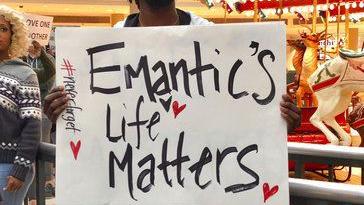 LOVE ONE
ANOTHER
#neverforget
Emantic's
Life
Matters